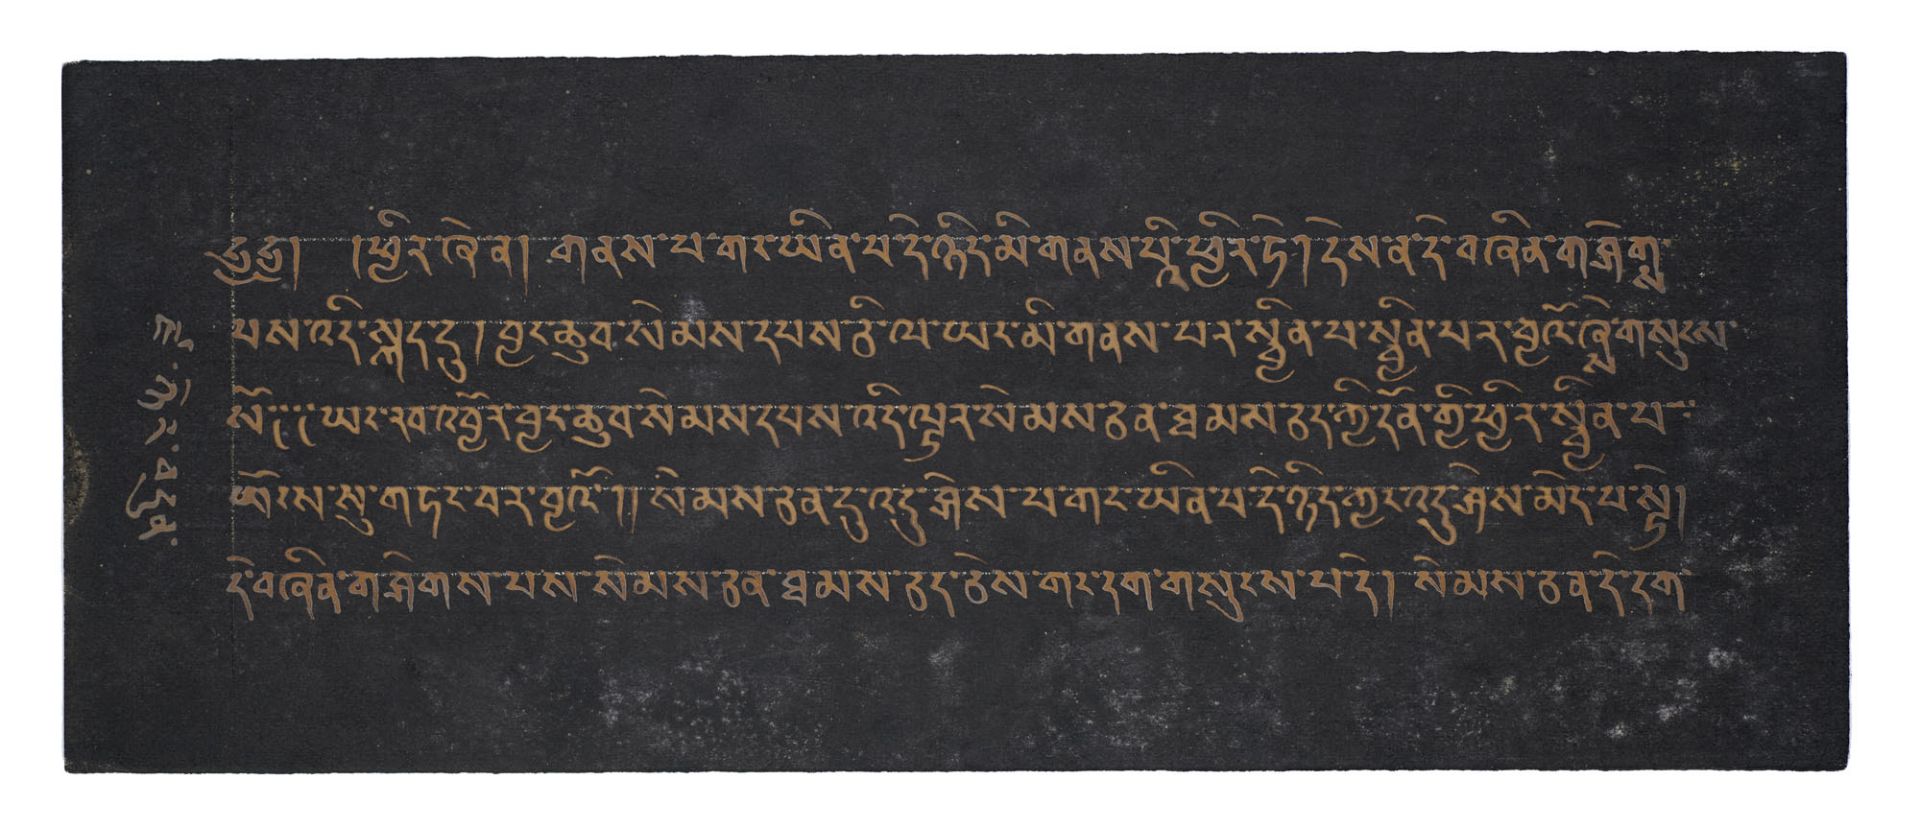 ༄༅། །ཕྱིར་ཞེ་ན། གནས་པ་གང་ཡིན་པ་དེ་ཉིད་མི་གནས་པའི་ཕྱིར་ཏེ། དེས་ན་དེ་བཞིན་གཤེགས
པས་འདི་སྐད་དུ། བྱང་ཆུབ་སེམས་དཔས་ཅི་ལ་ཡང་མི་གནས་པར་སྦྱིན་པ་སྦྱིན་པར་བྱའོ་ཞེས་གསུངས་
སོ༎ ཡང་རབ་འབྱོར་བྱང་ཆུབ་སེམས་དཔས་འདི་ལྟར་སེམས་ཅན་ཐམས་ཅད་ཀྱི་དོན་གྱི་ཕྱིར་སྦྱིན་པ་
ཡོངས་སུ་གཏང་བར་བྱའོ༎ སེམས་ཅན་དུ་འདུ་ཤེས་པ་གང་ཡིན་པ་དེ་ཉིད་ཀྱང་འདུ་ཤེས་མེད་པ་སྟེ།
དེ་བཞིན་གཤེགས་པས་སེམས་ཅན་ཐམས་ཅད་ཅེས་གང་དག་གསུངས་པ་དེ། སེམས་ཅན་དེ་དག